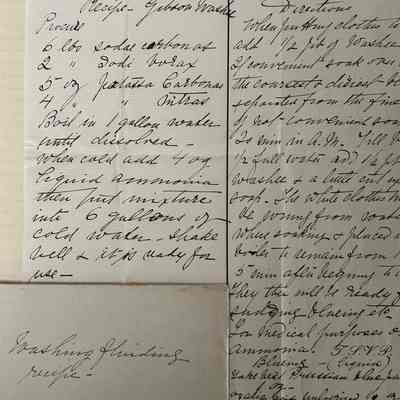 Recipe - Gibson Washer
Procure
6 lbs sodae carbonas
2 " Sodi borax
5 oz potassa Carbonas
4 " " nitras
Boil in 1 gallon water
until dissolved -
When cold add 4 oz
liquid ammonia
then put mixture
into 6 gallons of
cold water - shake
well & it is ready for
use -
Washing fluiding
recipe -
Directions
When putting clothes to
add 1/2 pt of Washer
If convenient soak over
the coarsest & dirtiest
separated from the fine
If not convenient soak
in A.M. Fill
1/2 full water add 1/2 pt
washer & a little cut up
soap. The white clothes
be from
when soaking & placed
boiler to remain from 1
5 min after begining to
They then will be ready
bluing etc.
For medical purposes
Ammonia. F.S.V.P.
Blueing - (Liquid)
Prussian blue
or -